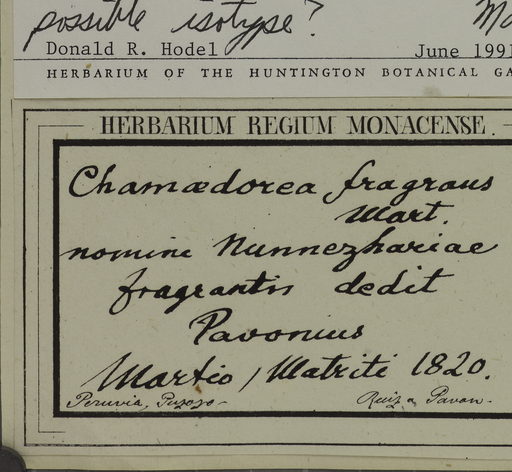 possible isotype?
Donald R. Hodel June 1991
HERBARIUM OF THE HUNTINGTON BOTANICAL GA
HERBARIUM REGIUM MONACENSE.
Chamædorea fragrans
Mart.
nomine Nunnezhariae
fragrantis dedit
Pavonius
Martio / Matriti 1820.
Peruvia, Puzozo-
Ruiz & Pavon-